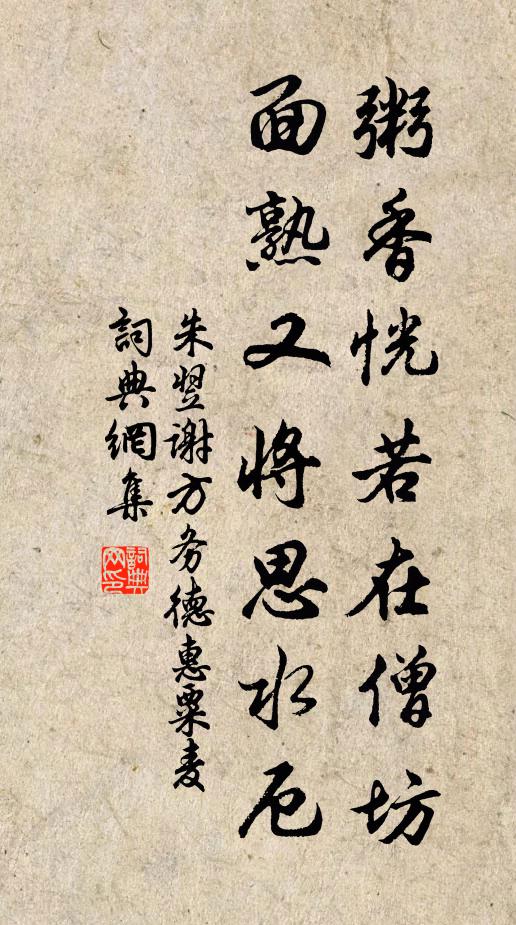 粥香恍若在僧坊
面熟又将思水厄
朱翌谢方务德惠粟麦
詞典網集
詞典网印